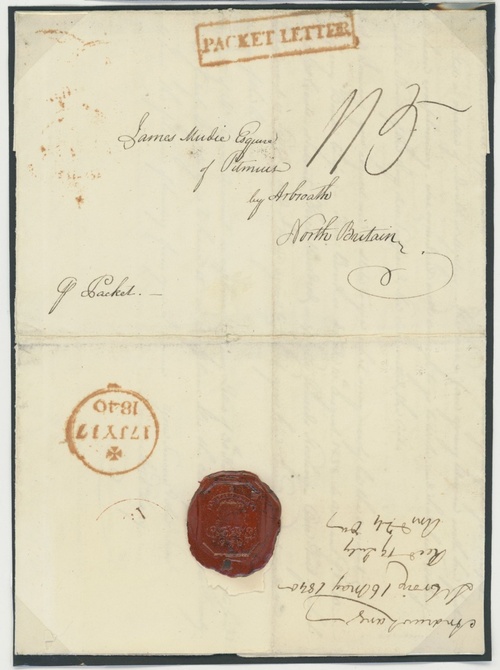 PACKET LETTER
N 5
James Mudie Esquire
of Pitmuies
by Arbroath
North Britain
P Packet. —
17 JY 17
1840
Andrew Lang
St Croix 16 May 1840
Recd 19 July
Ans 24